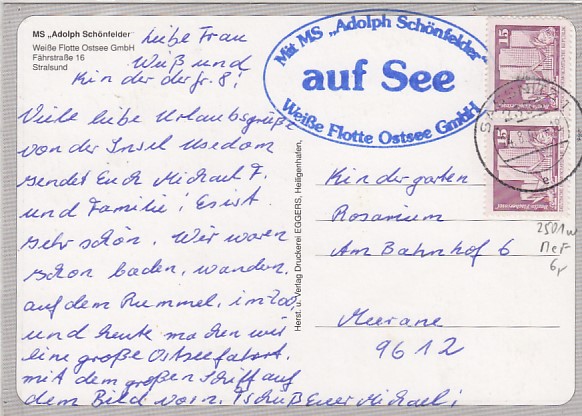 MS „Adolph Schönfelder"
Weiße Flotte Ostsee GmbH
Fährstraße 16
Stralsund
Liebe Frau
Weiß und
Kinder der Gr. 8!
Viele liebe Urlaubsgrüße
von der Insel Usedom
sendet Euch Michael F.
und Familie! Es ist
sehr schön. Wir waren
schon baden, wandern,
auf dem Rummel, im Zoo
und heute machen wir
eine große Ostseefahrt.
mit dem großen Schiff auf
dem Bild vorn. Tschüß Euer Michael!
Herst. u. Verlag Druckerei EGGERS, Heiligenhafen,
Mit MS „Adolph Schönfelder"
auf See
Weiße Flotte Ostsee GmbH
15
15
Kindergarten
Rosarium
Am Bahnhof 6
Meerane
9612
2501w
MeF